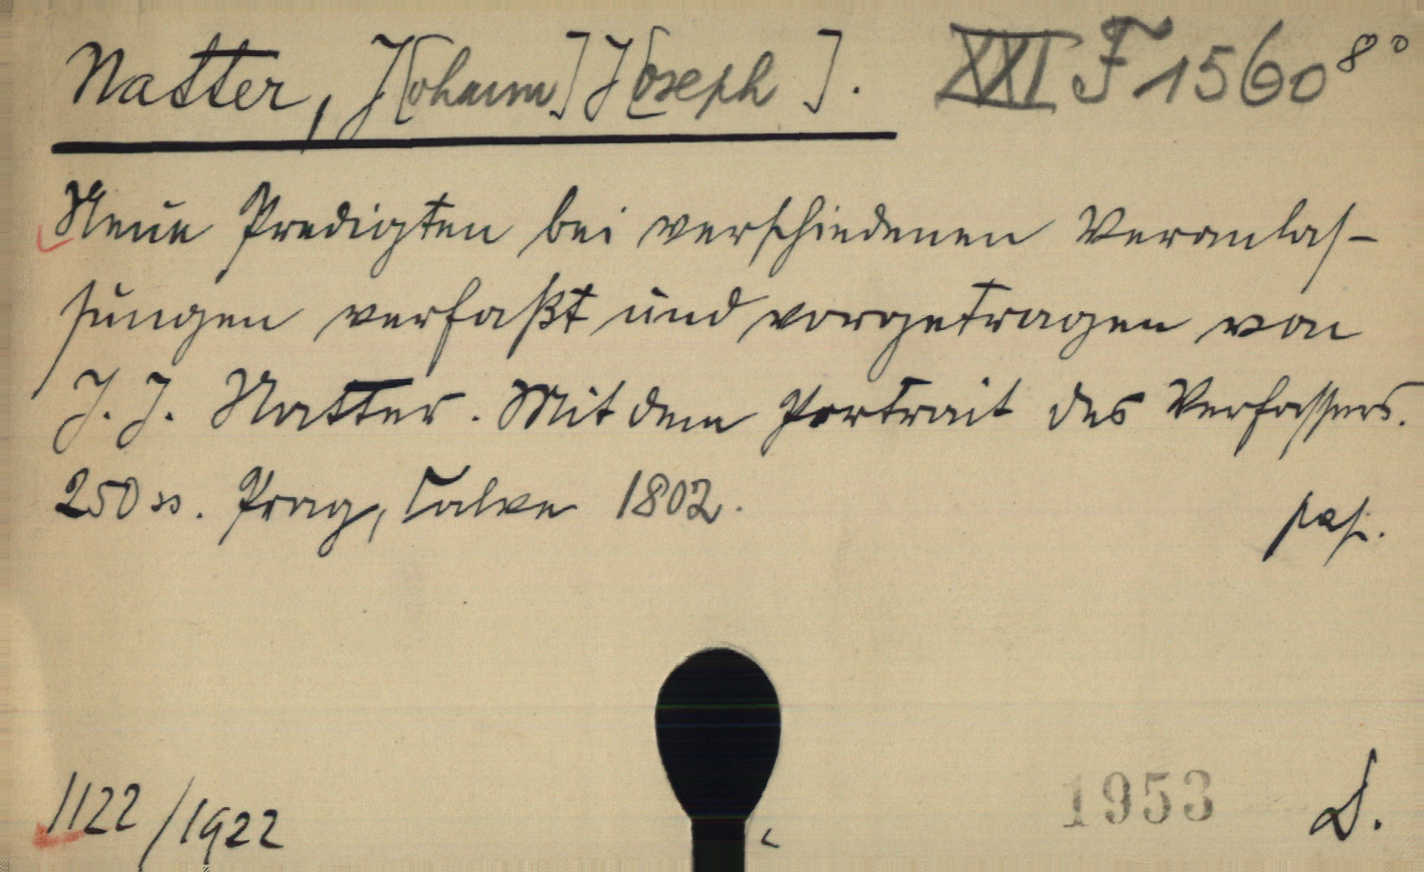 Natter, J[ohann] J[oseph]. XXI F 1560 8°
Neue Predigten bei verschiedenen Veranlas-
sungen verfaßt und vorgetragen von
J. J. Natter. Mit dem Portrait des Verfassers.
250 ss. Prag, Calve 1802.
1122/1922
1953